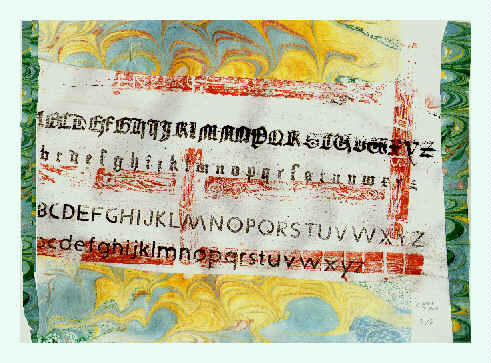 ABCDEFGHIJKLMNOPQRSTUVWXYZ
bcdefghijklmnopqrstuvwxyz
BCDEFGHIJKLMNOPQRSTUVWXYZ
bcdefghijklmnopqrstuvwxyz